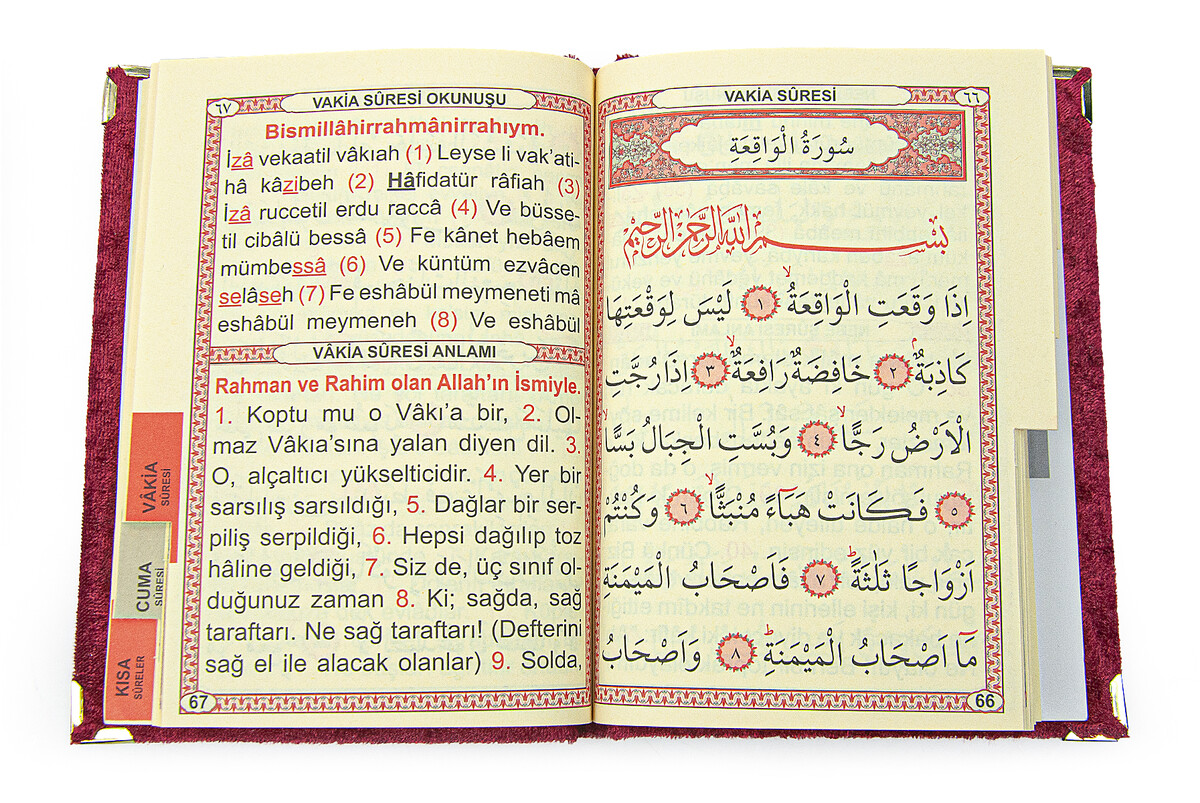 VAKİA SÛRESİ
٦٦
سُورَةُ الْوَاقِعَةِ
بِسْمِ اللّٰهِ الرَّحْمٰنِ الرَّحِيمِ
اِذَا وَقَعَتِ الْوَاقِعَةُۙ ﴿١﴾ لَيْسَ لِوَقْعَتِهَا
كَاذِبَةٌۢ ﴿٢﴾ خَافِضَةٌ رَافِعَةٌۙ ﴿٣﴾ اِذَا رُجَّتِ
الْاَرْضُ رَجًّاۙ ﴿٤﴾ وَبُسَّتِ الْجِبَالُ بَسًّاۙ
﴿٥﴾ فَكَانَتْ هَبَٓاءً مُنْبَثًّاۙ ﴿٦﴾ وَكُنْتُمْ
اَزْوَاجًا ثَلٰثَةًۜ ﴿٧﴾ فَاَصْحَابُ الْمَيْمَنَةِ
مَٓا اَصْحَابُ الْمَيْمَنَةِۜ ﴿٨﴾ وَاَصْحَابُ
66
VAKİA SÛRESİ OKUNUŞU
٦٧
Bismillâhirrahmânirrahıym.
İzâ vekaatil vâkıah (1) Leyse li vak’ati-
hâ kâzibeh (2) Hâfidatür râfiah (3)
İzâ ruccetil erdu raccâ (4) Ve büsse-
til cibâlü bessâ (5) Fe kânet hebâem
mümbessâ (6) Ve küntüm ezvâcen
selâseh (7) Fe eshâbül meymeneti mâ
eshâbül meymeneh (8) Ve eshâbül
VÂKİA SÛRESİ ANLAMI
Rahman ve Rahim olan Allah’ın İsmiyle.
1. Koptu mu o Vâkı’a bir, 2. Ol-
maz Vâkıa’sına yalan diyen dil. 3.
O, alçaltıcı yükselticidir. 4. Yer bir
sarsılış sarsıldığı, 5. Dağlar bir ser-
piliş serpildiği, 6. Hepsi dağılıp toz
hâline geldiği, 7. Siz de, üç sınıf ol-
duğunuz zaman 8. Ki; sağda, sağ
taraftarı. Ne sağ taraftarı! (Defterini
sağ el ile alacak olanlar) 9. Solda,
67
VÂKİA
SÛRESİ
CUMA
SÛRESİ
KISA
SÛRELER